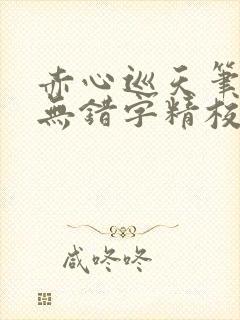 赤心巡天筆
無錯字精校
咸咚咚